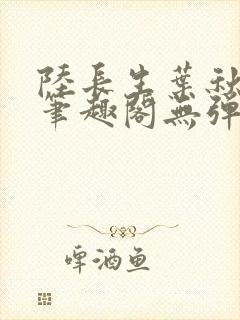 陸長生葉秋
筆趣閣無彈
啤酒鱼